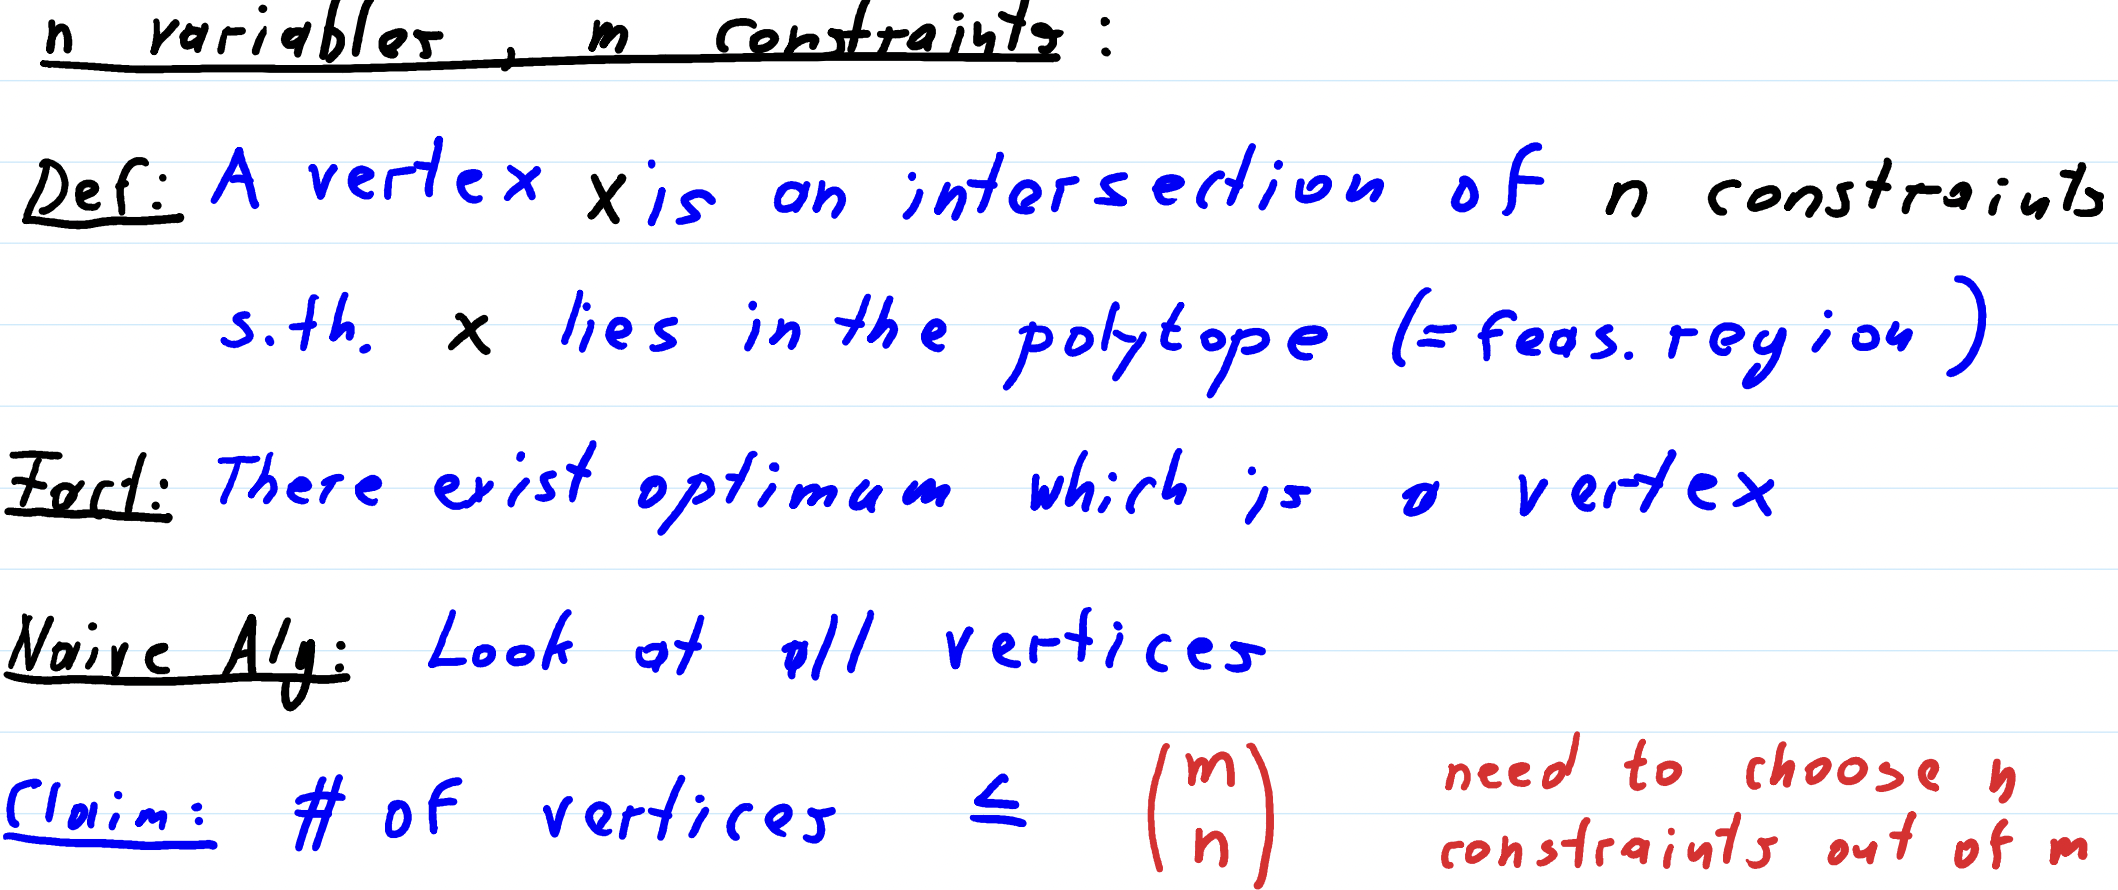 n variables, m constraints:
Def: A vertex x is an intersection of n constraints
s.th. x lies in the polytope (= feas. region)
Fact: There exist optimum which is a vertex
Naive Alg: Look at all vertices
Claim: # of vertices ≤ (m n) need to choose n
constraints out of m